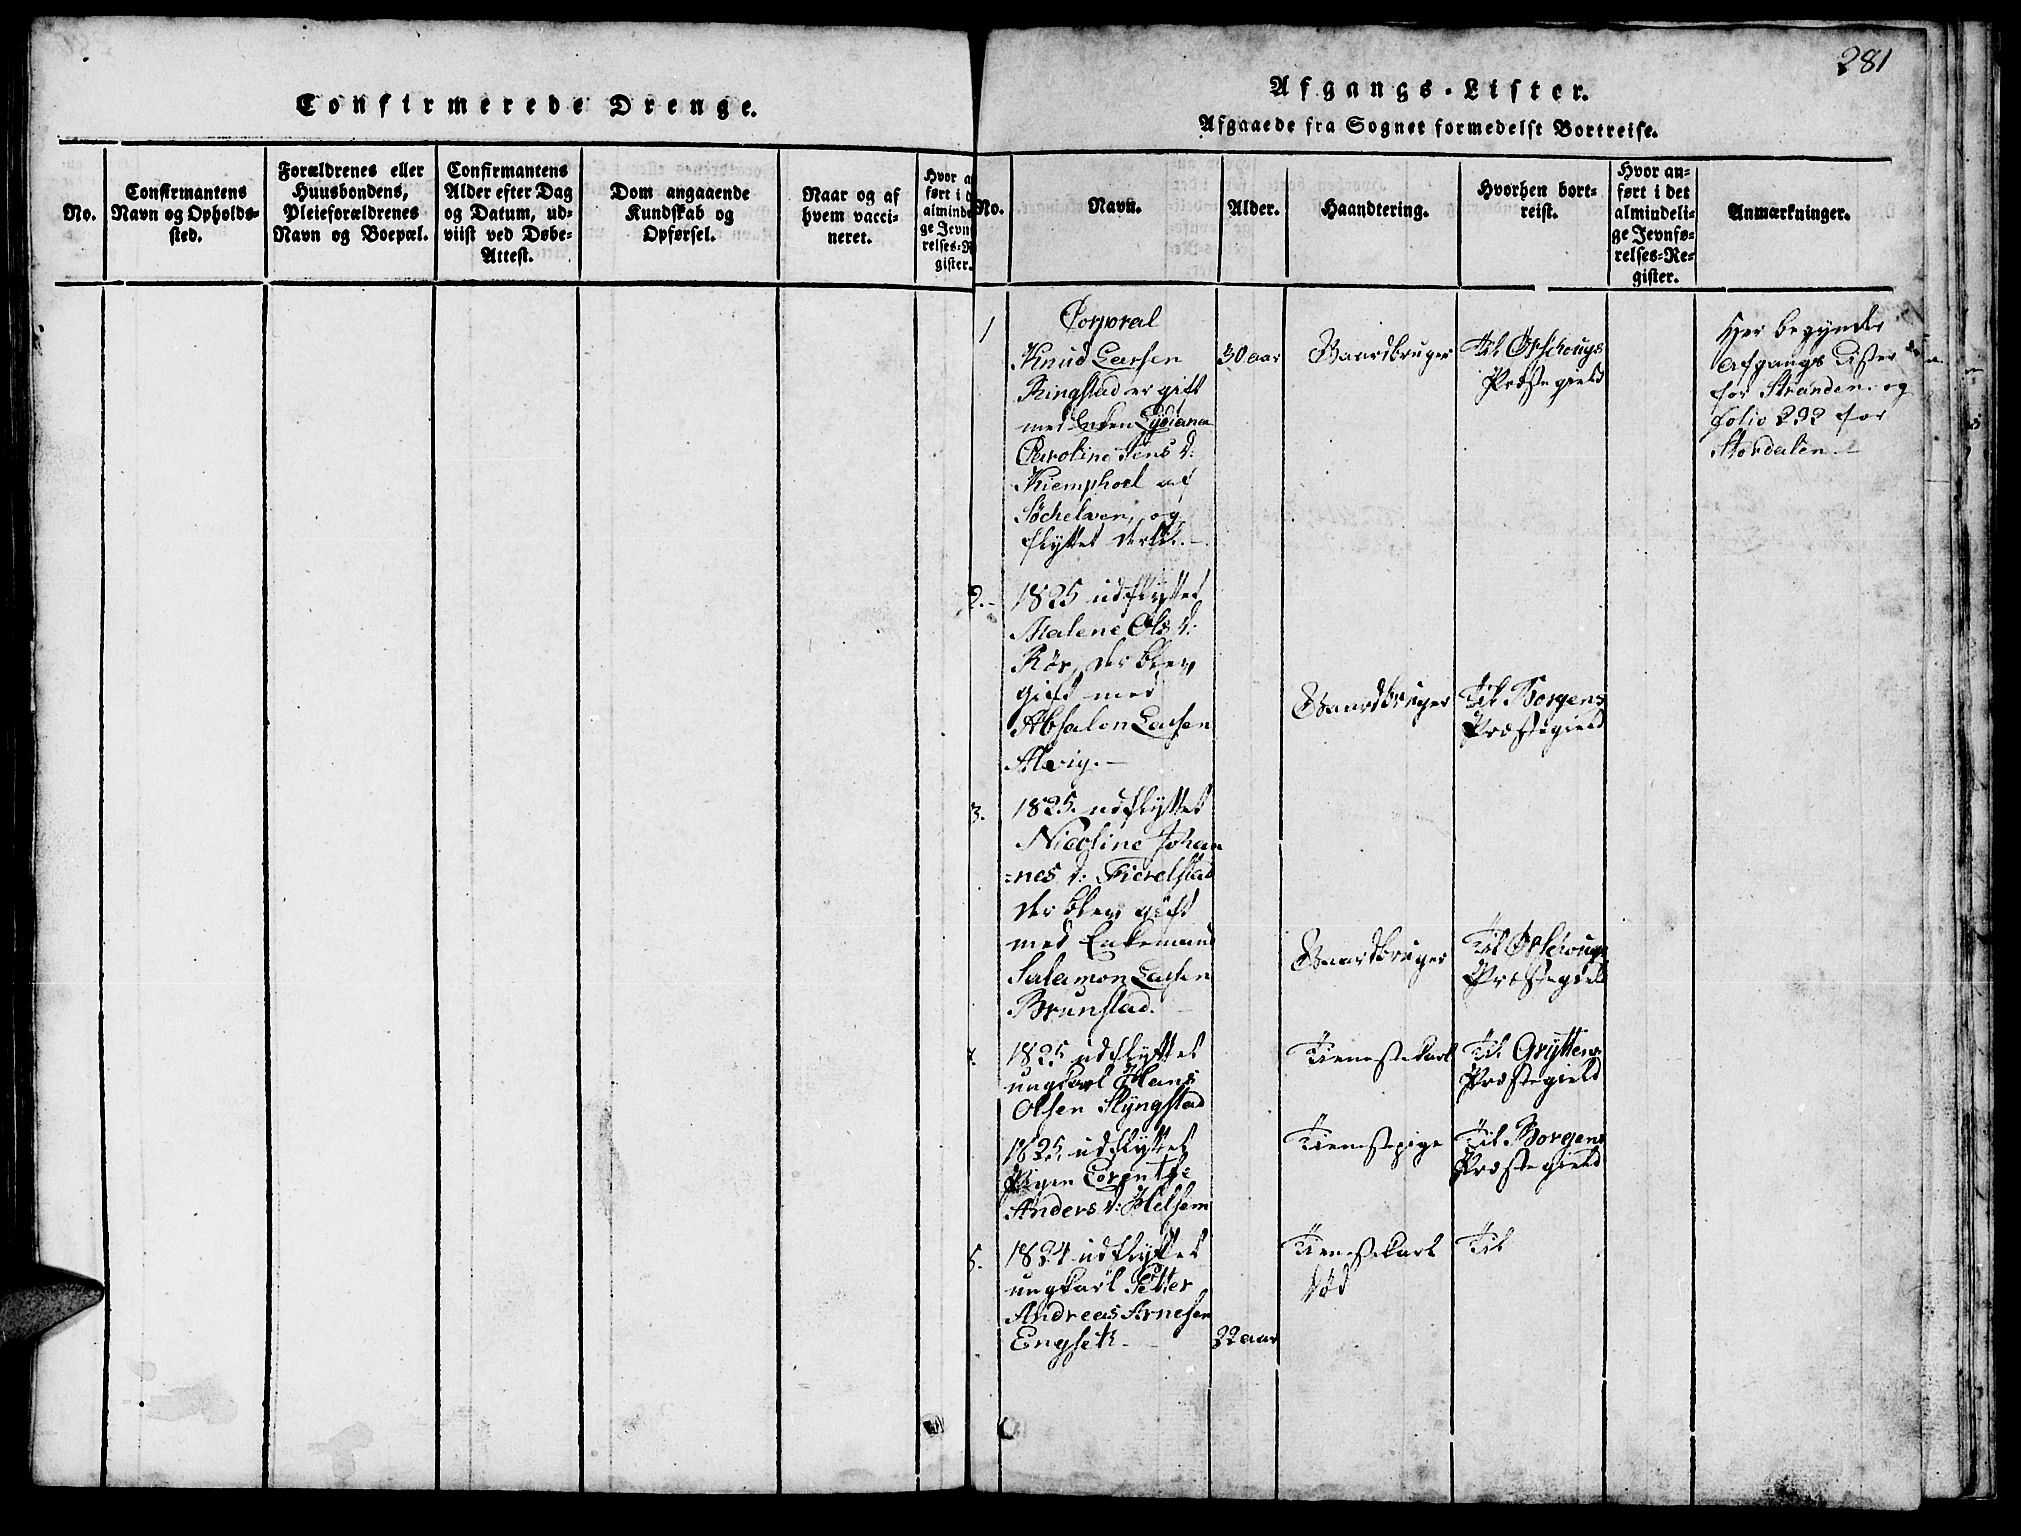 Confirmerede Drenge.
No.
Confirmantens
Navn og Opholds-
sted.
Forældrenes eller
Huusbondens,
Pleieforældrenes
Navn og Boepæl.
Confirmantens
Alder efter Dag
og Datum, ud-
viist ved Døbe-
Attest.
Dom angaaende
Kundskab og
Opførsel.
Naar og af
hvem vacci-
neret.
Hvor a
ført i d
alminde
ge Jevn
relses-R
gister.
281
Afgangs-Lister.
Afgaaede fra Sognet formedelst Bortreise.
No.
Navn.
Alder.
Haandtering.
Hvorhen bort-
reist.
Hvor an-
ført i det
almindeli-
ge Jevnfø-
relses-Re-
gister.
Anmærkninger.
1
Corporal
Knud Larsen
Ringstad er gift
med Enken
Caroline Jens d:
af
og
flyttet dertil.
30 aar
Gaardbruger
Til Ørschougs
Præstegield
Her begynder
Afgangs Lister
for Stranden og
folio 292 for
Stordalen
2.
1825 udflyttet
Malene Ols d:
Rør, der blev
gift med
Absalon Larsen
Alvig.
Gaardbruger
Til Borgens
Præstegield
3.
1825. udflyttet
Nicoline Johan
=nes d: Fierelstad
der blev gift
med Enkemand
Salamon Larsen
Brunstad.
Gaardbruger
Til Ørschougs
Præstegield
1825 udflyttet
ungkarl Hans
Olsen Slyngstad
Tienestekarl
Til Gryttens
Præstegield
1825. udflyttet
Pigen Lorentse
Anders d: Helsem
Tienestepige
Til Borgens
Præstegield
5.
1824 udflyttet
ungkarl Petter
Andreas Arnesen
Engset.
22 aar
Tienestekarl
død
Til